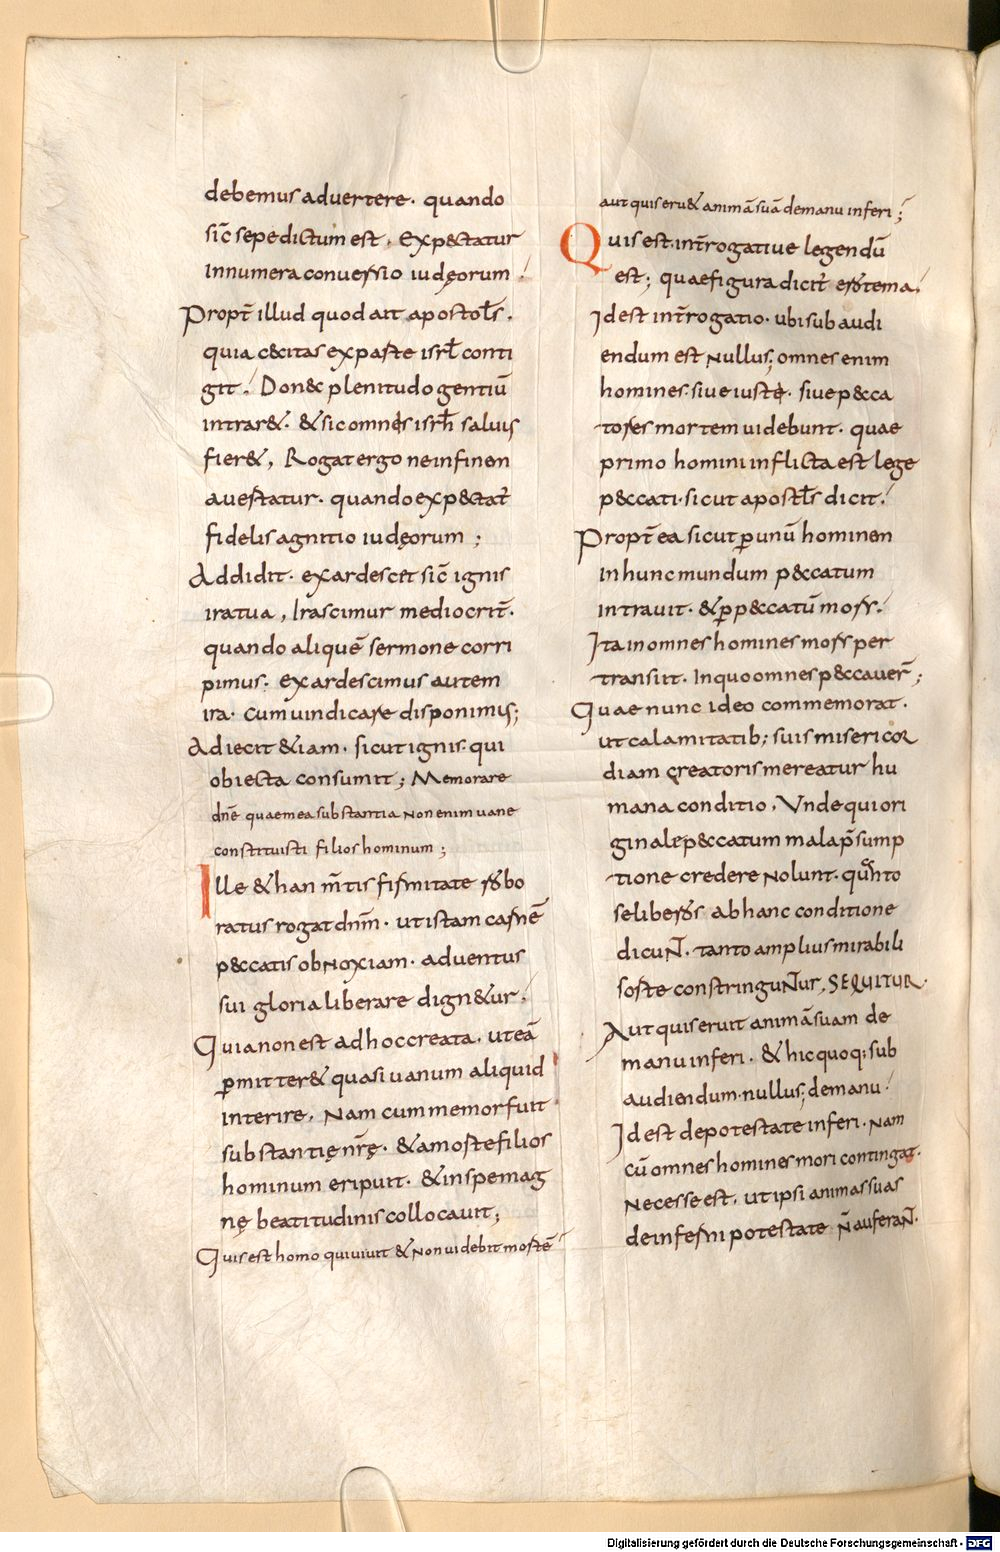 debemus aduertere. quando
sic̄ sepe dictum est, Expectatur
innumera conuersio iudęorum.
Propt̄ illud quod ait apostol̄s.
quia cecitas ex parte isrl̄ conti
git. Donec plenitudo gentiū
intrar&. & sic omnis isrl̄ saluus
fier&, Rogat ergo ne in finen
auertatur. quando expectat̄
fidelis agnitio iudęorum;
Addidit. exardescet sic̄ ignis
ira tua, Irascimur mediocrit̄.
quando aliquē sermone corri
pimus. exardescimus autem
ira. cum uindicare disponimus;
Adiecit &iam. sicut ignis. qui
obiecta consumit; Memorare
dn̄e quae mea substantia Non enim uane
constituisti filios hominum;
Ille & han m̄tis firmitate robo
ratus rogat dn̄m. ut istam carnē
peccatis obnoxiam. aduentus
sui gloria liberare dign&ur.
Quia non est ad hoc creata. ut eā
p̄mitter& quasi uanum aliquid
interire. Nam cum memor fuit
substantię nr̄ę. & a morte filios
hominum eripuit. & in spe mag
nę beatitudinis collocauit;
Quis est homo qui uiuit & non uidebit mortē
aut quis eru& animā suā de manu inferi;
Quis est. int̄rogatiue legendū
est; quae figura dicit̄ erotema.
Id est int̄rogatio. ubi subaudi
endum est Nullus; omnes enim
homines. siue iusti. siue pecca
tores mortem uidebunt. quae
primo homini inflicta est lege
peccati. sicut apostl̄s dicit.
Propt̄ea sicut p̄ unū hominen
in hunc mundum peccatum
intrauit. & p̄ peccatū mors.
Ita in omnes homines mors per
transiit. In quo omnes peccauer̄;
Quae nunc ideo commemorat.
ut calamitatib; suis misericor
diam creatoris mereatur hu
mana conditio. Vnde qui ori
ginale peccatum mala p̄sump
tione credere nolunt. quāto
se liberos ab hanc conditione
dicuN̄. tanto amplius mirabili
sorte constringuN̄ur, SEQUITUR.
Aut quis eruit animā suam de
manu inferi. & hic quoq; sub
audiendum. nullus; de manu.
Id est de potestate inferi. Nam
cū omnes homines mori contingat.
Necesse est. ut ipsi animas suas
de inferni potestate n̄ auferaN̄.
Digitalisierung gefördert durch die Deutsche Forschungsgemeinschaft - DFG